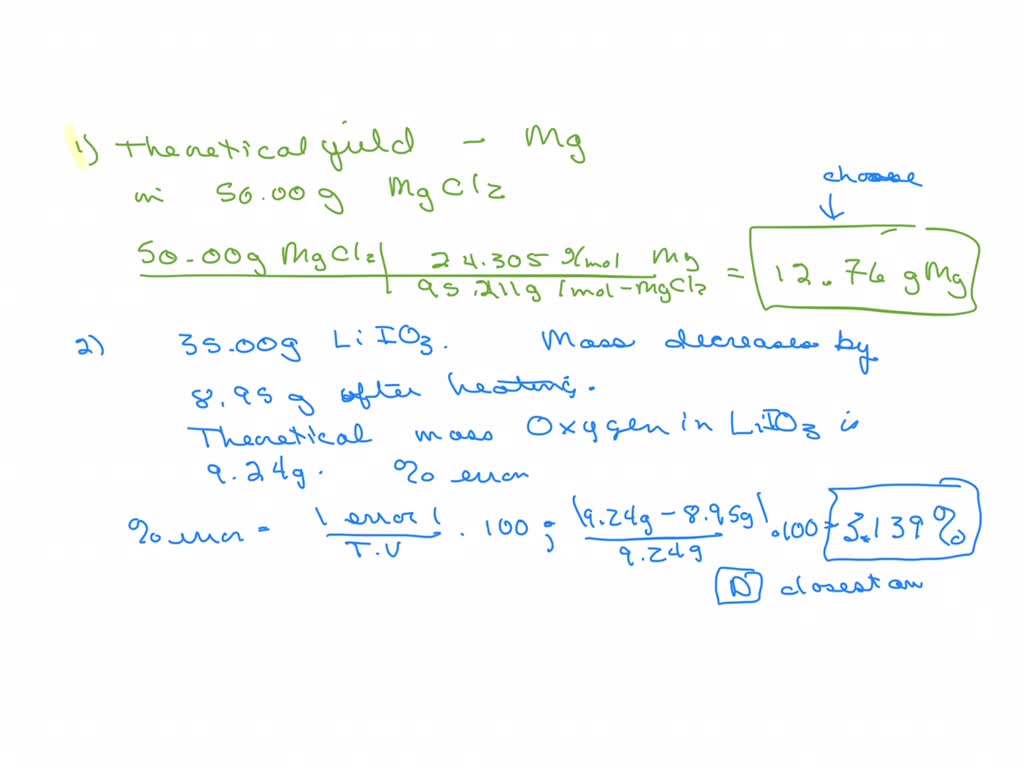 1) Theoretical yield - Mg
in 50.00g MgCl2
choose
↓
50.00g MgCl2 | 24.305 g/mol Mg = 12.76 g Mg
95.211g 1mol-MgCl2
2) 35.00g LiIO3. Mass decreases by
8.95g after heating.
Theoretical mass Oxygen in LiIO3 is
9.24g. % error
% error = |error| / T.V . 100 ; |9.24g - 8.95g| / 9.24g .100 = 3.139%
D closest an